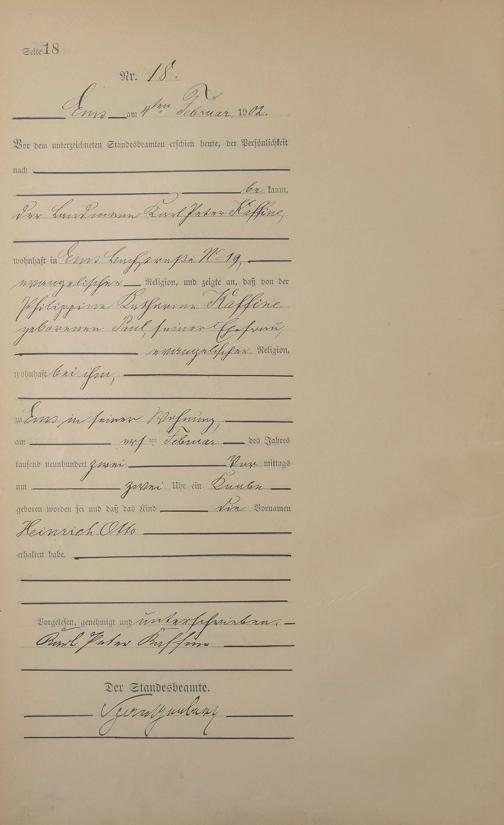 Seite 18
Nr. 18.
Ems am 4ten Februar 1902.
Vor dem unterzeichneten Standesbeamten erschien heute, der Persönlichkeit
nach
be kannt,
der Landmann Karl Peter Kaffine,
wohnhaft in Ems, Bachstraße No 19,
evangelischer Religion, und zeigte an, daß von der
Philippine Katharine Kaffine
geborenen Paul, seiner Ehefrau,
evangelischer Religion,
wohnhaft bei ihm,
zu Ems in seiner Wohnung,
am ersten Februar des Jahres
tausend neunhundert zwei Vor mittags
um zwei Uhr ein Knabe
geboren worden sei und daß das Kind die Vornamen
Heinrich Otto
erhalten habe.
Vorgelesen, genehmigt und unterschrieben.
Karl Peter Kaffine
Der Standesbeamte.